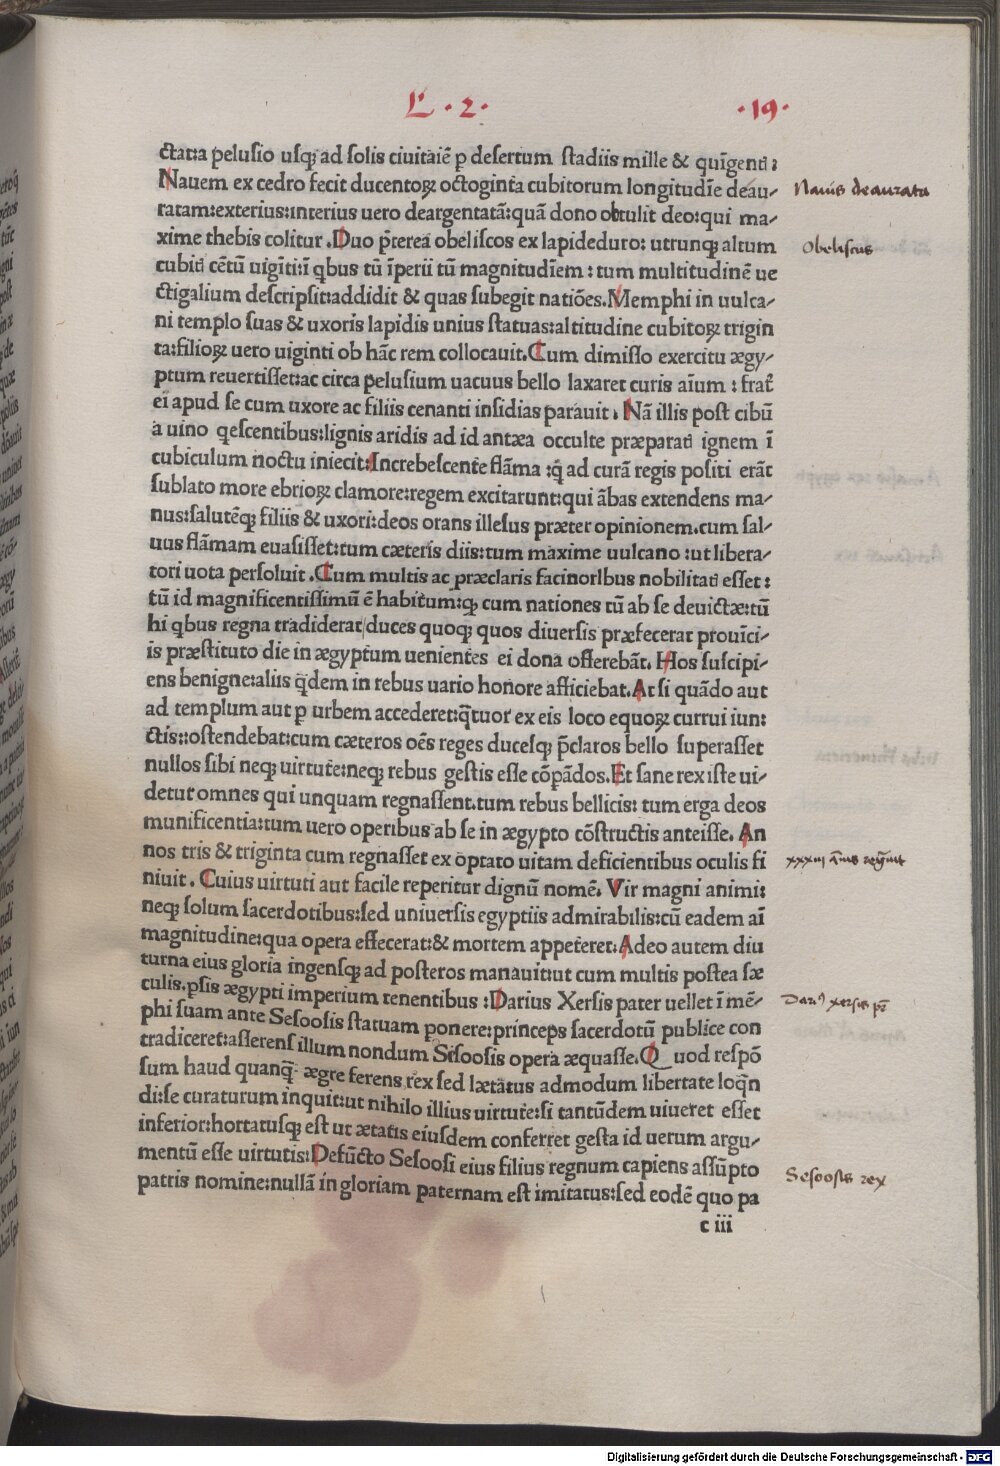 L · 2 · · 19 ·
ctat:a pelusio usqꝫ ad solis ciuitatē p desertum stadiis mille & quīgentı :
Nauem ex cedro fecit ducentoꝝ octoginta cubitorum longitudīe deau-
Nauis deaurata
ratam:exterius:interius uero deargentatā:quā dono obtulit deo:qui ma-
xime thebis colitur .Duo p̄terea obeliscos ex lapideduro: utrunqꝫ altum
Obeliscus
cubitı cētū uigīti:ī qbus tū īperii tū magnitudīem : tum multitudinē ue
ctigalium descripsit:addidit & quas subegit natiōes.Memphi in uulca-
ni templo suas & uxoris lapidis unius statuas:altitudine cubitoꝝ trigin
ta:filioꝝ uero uiginti ob hāc rem collocauit.Cum dimisso exercitu ægy-
ptum reuertisset:ac circa pelusium uacuus bello laxaret curis aīum : frat̄
ei apud se cum uxore ac filiis cenanti insidias parauit . Nā illis post cibū
a uino qescentibus:lignis aridis ad id antæa occulte præparatı ignem ī
cubiculum noctu iniecit:Increbescente flāma :q̄ ad curā regis positi erāt
sublato more ebrioꝝ clamore:regem excitarunt:qui ābas extendens ma-
nus:salutēqꝫ filiis & uxori:deos orans illesus præter opinionem.cum sal-
uus flāmam euasisset:tum cæteris diis:tum maxime uulcano :ut libera-
tori uota persoluit .Cum multis ac præclaris facinorIbus nobilitatı esset :
tū id magnificentissimū ē habitum:qꝫ cum nationes tū ab se deuictæ:tū
hi qbus regna tradiderat duces quoqꝫ quos diuersis præfecerat prouīci-
is præstituto die in ægyptum uenientes ei dona offerebāt. Hos suscipi-
ens benigne:aliis q̄dem in rebus uario honore afficiebat.At si quādo aut
ad templum aut p urbem accederet:q̄tuor ex eis loco equoꝝ currui iun:
ctis::ostendebat:cum cæteros oēs reges ducesqꝫ p̄claros bello superasset
nullos sibi neqꝫ uirtute:neqꝫ rebus gestis esse cōpādos.Et sane rex iste ui-
detur omnes qui unquam regnassent.tum rebus bellicis: tum erga deos
munificentia:tum uero operibus ab se in ægypto cōstructis anteisse. An
nos tris & triginta cum regnasset ex optato uitam deficientibus oculis fi
xxxiii
niuit . Cuius uirtuti aut facile reperitur dignū nomē. Vir magni animi:
neqꝫ solum sacerdotibus:sed uniuersis egyptiis admirabilis:cū eadem aī
magnitudine:qua opera effecerat:& mortem appeteret:Adeo autem diu
turna eius gloria ingensqꝫ ad posteros manauit:ut cum multis postea sæ
culis.psis ægypti imperium tenentibus :Darius Xersis pater uellet ī mē-
phi suam ante Sesoosis statuam ponere:princeps sacerdotū publice con
tradiceret:asserens illum nondum Sesoosis opera æquasse.Quod respō
sum haud quanq̄ ægre ferens rex sed lætatus admodum libertate loq̄n
di:se curaturum inquit:ut nihilo illius uirtute:si tantūdem uiueret esset
inferior:hortatusqꝫ est ut ætatis eiusdem conferret gesta id uerum argu-
mentū esse uirtutis:Defūcto Sesoosi eius filius regnum capiens assūpto
Sesoosis rex
patris nomine:nullā in gloriam paternam est imitatus:sed eodē quo pa
c iii
Digitalisierung gefördert durch die Deutsche Forschungsgemeinschaft - DFG